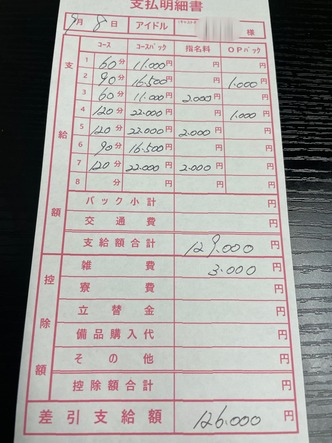 支払明細書
9月8日 アイドル 様
コース コースバック 指名料 OPバック
支給額
1 60分 11.000円 円 円
2 90分 16.500円 円 1.000円
3 60分 11.000円 2.000円 円
4 120分 22.000円 円 1.000円
5 120分 22.000円 2.000円 円
6 90分 16.500円 円 円
7 120分 22.000円 2.000円 円
8 分 円 円 円
バック小計 円
交通費 円
支給額合計 129.000円
控除額
雑費 3.000円
寮費 円
立替金 円
備品購入代 円
その他 円
控除額合計 円
差引支給額 126.000円